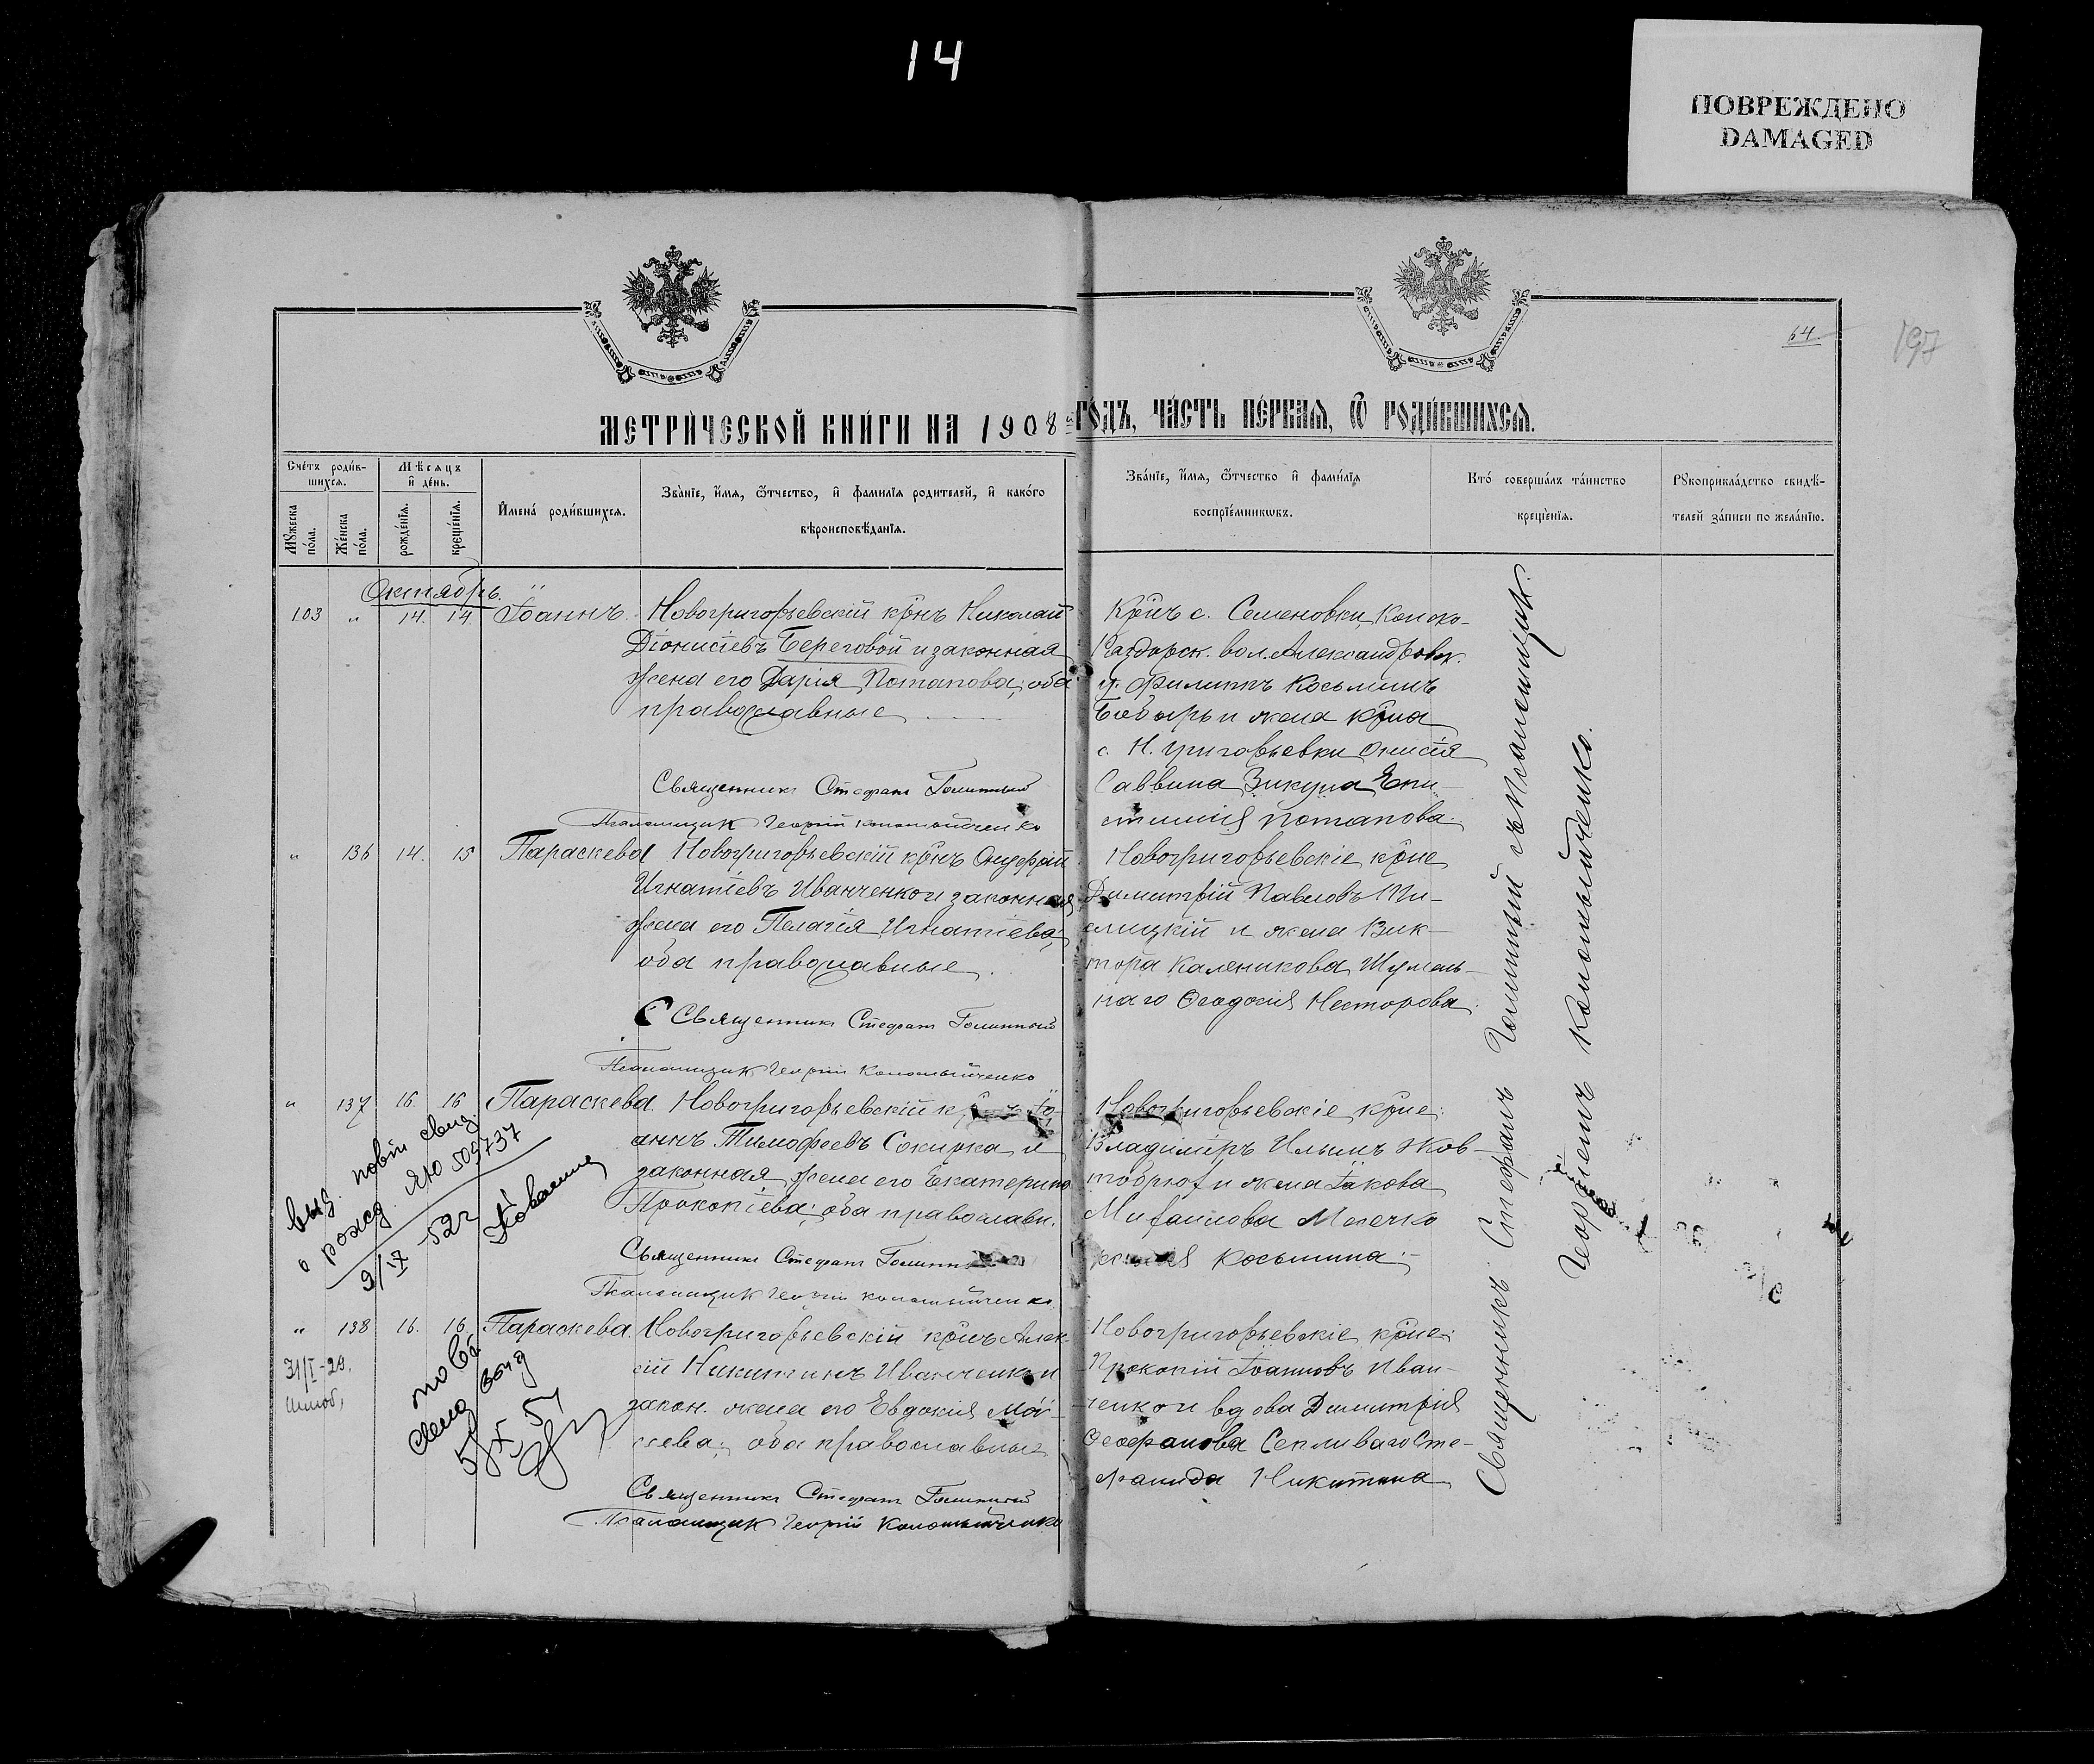 14
ПОВРЕЖДЕНО
DAMAGED
64
197
МЕТРИ́ЧЕСКОЙ КНИ́ГИ НА 1908 ГОДЪ, ЧА́СТЬ ПЕ́РВАЯ, Ѿ РОДИ́ВШИХСЯ.
Сче́тъ роди́в-
шихся.
Мѣ́сяцъ
и҆ де́нь.
Му́жеска по́ла.
Же́нска по́ла.
рожде́нїя.
креще́нїя.
И҆мена̀ роди́вшихся.
Зва́нїе, и҆́мя, ѻ҆́тчество, и҆ фами́лїя роди́телей, и҆ како́го
вѣроисповѣ́данїя.
Зва́нїе, и҆́мя, ѻ҆́тчество и҆ фами́лїя
воспрїе́мникѡвъ.
Кто̀ соверша́лъ та́инство
креще́нїя.
Рꙋкоприкла́дство свидѣ́-
телей за́писи по жела́нїю.
Октябрь.
103 „ 14. 14 Іоаннъ. Новогригорьевскій крнъ Николай
Діонисіевъ Береговой и законная
жена его Дарія Потапова; оба
православные
Священникъ Стефанъ Голинный
Псаломщикъ Георгій Коломыйченко
Крнъ с. Семеновки, Конско-
Раздорск. вол. Александровск.
у. Филиппъ Косьминъ
Бабырь и жена крна
с. Н. Григорьевки Онисія
Саввина Викула Епи-
стимія Потапова.
„ 136 14. 15 Параскева Новогригорьевскій крнъ Онуфрій
Игнатіевъ Иванченко и законная
жена его Пелагія Игнатіева;
оба православные.
Священникъ Стефанъ Голинный
Псаломщикъ Георгій Коломыйченко
Новогригорьевскіе крне
Димитрій Павловъ
и жена Вик-
тора Каленикова
наго Феодосія Несторова.
„ 137 16. 16 Параскева. Новогригорьевскій
аннъ Тимофеевъ Сокирка и
законная жена его Екатерина
Прокопіева; оба православн.
Священникъ Стефанъ
Псаломщикъ Георгій Коломыйченко
Новогригорьевскіе крне:
Владиміръ Ильинъ Жов-
тобрюх и жена Іакова
Михаилова
Косьмина.
выд. повін свид.
о рожд. ЯЮ 509737
9/IX 52г
„ 138 16. 16 Параскева. Новогригорьевскій крнъ Алек-
сій Никитинъ Иванченко и
закон. жена его Евдокія Мої-
сеева; оба православные
Священникъ Стефанъ Голинный
Псаломщикъ Георгій Коломыйченко
Новогригорьевскіе крне:
Прокопій Іоанновъ Иван-
ченко и вдова Димитрія
Феофанова Сте-
фанида Никитина
31/I-29.
Священникъ Стефанъ Голинный съ Псаломщикомъ
Георгіемъ Коломыйченко.